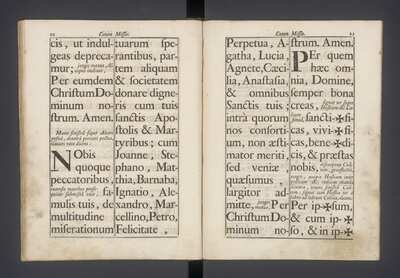 22 Canon Missæ.
cis, ut indul-
geas depreca-
mur;
Per eumdem
Christum Do-
minum no-
strum. Amen.
NObis
quoque
peccatoribus,
fa-
mulis tuis, de
multitudine
miserationum
tuarum spe-
rantibus, par-
tem aliquam
& societatem
donare digne-
ris cum tuis
sanctis Apo-
stolis & Mar-
tyribus; cum
Joanne, Ste-
phano, Mat-
thia, Barnaba,
Ignatio, Ale-
xandro, Mar-
cellino, Petro,
Felicitate,
Canon Missæ. 23
Perpetua, A-
gatha, Lucia,
Agnete, Cæci-
lia, Anastasia,
& omnibus
Sanctis tuis;
intrà quorum
nos consorti-
um, non æsti-
mator meriti,
sed veniæ
quæsumus,
largitor ad-
mitte, Per
Christum Do-
minum no-
strum. Amen.
PEr quem
hæc om-
nia, Domine,
semper bona
creas,
sancti✠fi-
cas, vivi✠fi-
cas, bene✠di-
cis, & præstas
nobis,
Per ip✠sum,
& cum ip✠
so, & in ip✠